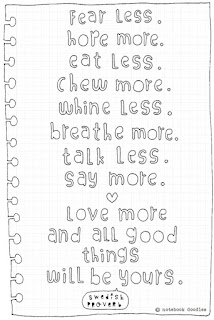 fear less.
hope more.
eat less.
chew more.
whine less.
breathe more.
talk less.
say more.
love more
and all good
things
will be yours.
swedish
proverb
© notebook doodles